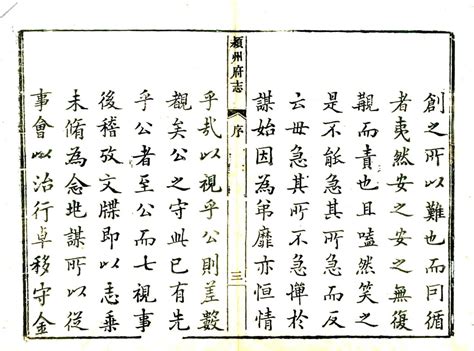 創之所以難也而囙循
者夷然安之安之無復
而責也且嗑然笑之
是不能急其所急而反
云毋急其所不急憚於
謀始因為弟靡亦恒情
潁州府志 序 三
乎哉以視乎公則差數
覩矣公之守此已有先
乎公者至公而七視事
後稽攷文牒即以志乘
未脩為念地謀所以從
事會以治行卓移守金